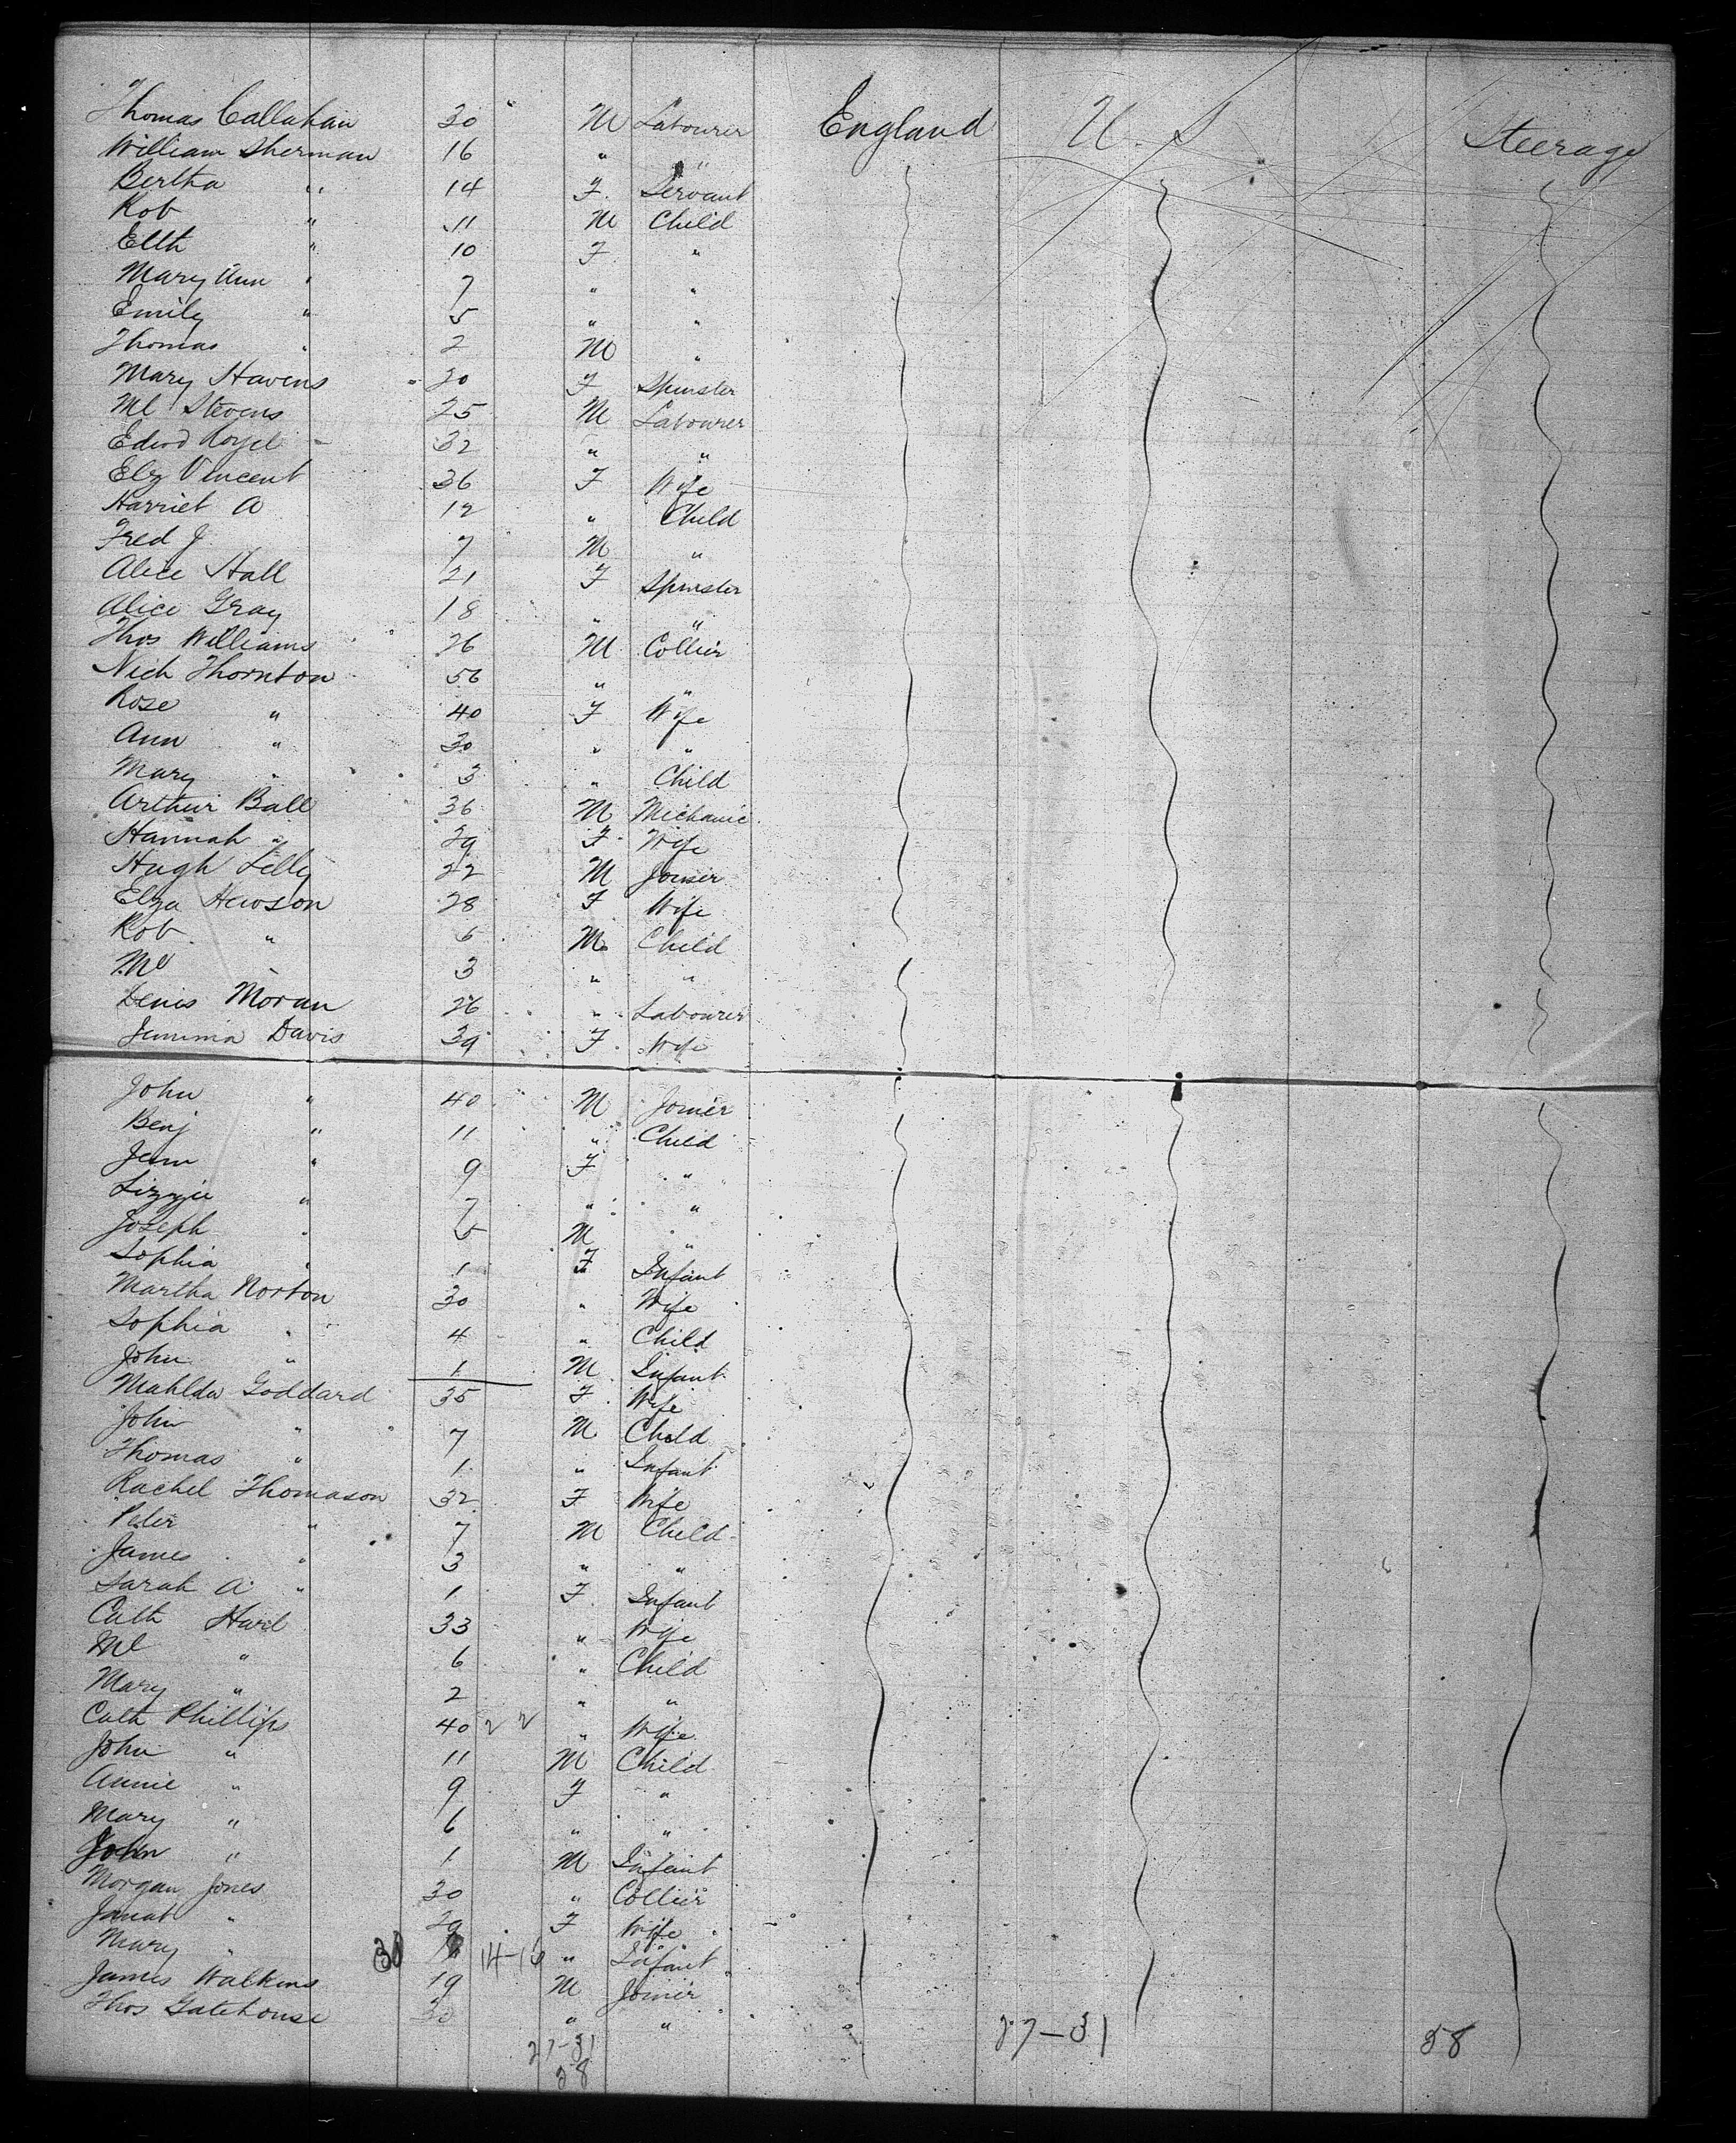 Thomas Callahan 30 " M Labourer England U. S Steerage
William Sherman 16 " "
Bertha " 14 F. Servant
Rob " 11 M Child
Elth " 10 F "
Mary Ann " 7 " "
Emily " 5 " "
Thomas " 2 M "
Mary Havens 20 F Spinster
Ml Stevens 25 M Labourer
Edwd 32 " "
Elz Vincent 36 F Wife
Harriet A 12 " Child
Fred J. 7 M "
Alice Hall 21 F Spinster
Alice Gray 18 " "
Thos Williams 26 M Collier
Nich Thornton 56 " "
Rose " 40 F Wife
Ann " 30 " "
Mary " 3 " Child
Arthur Ball 36 M Michanic
Hannah " 29 F Wife
Hugh Lelly 22 M Joiner
Elza Hewson 28 F Wife
Rob " 6 M Child
Ml " 3 " "
Denis Moran 26 " Labourer
Jemima Davis 39 F Wife
John " 40 M Joiner
Benj " 11 " Child
Jem " 9 F "
Lizzie " 7 " "
Joseph " 5 M "
Sophia " 1 F Infant
Martha Norton 30 " Wife
Sophia " 4 " Child
John " 1 M Infant
Mahlda Goddard 35 F Wife
John " 7 M Child
Thomas " 1 " Infant
Rachel Thomason 32 F Wife
Peter " 7 M Child
James " 3 " "
Sarah A " 1 F. Infant
Cath 33 " Wife
Ml " 6 " Child
Mary " 2 " "
Cath Phillips 40 " Wife
John " 11 M Child
Annie " 9 F "
Mary " 6 " "
John " 1 M Infant
Morgan Jones 30 " Collier
Janat " 29 F Wife
Mary " 14-16 " Infant
James Watkins 19 M Joiner
Thos Gatehouse 30 " "
27-31 27-31 58
58